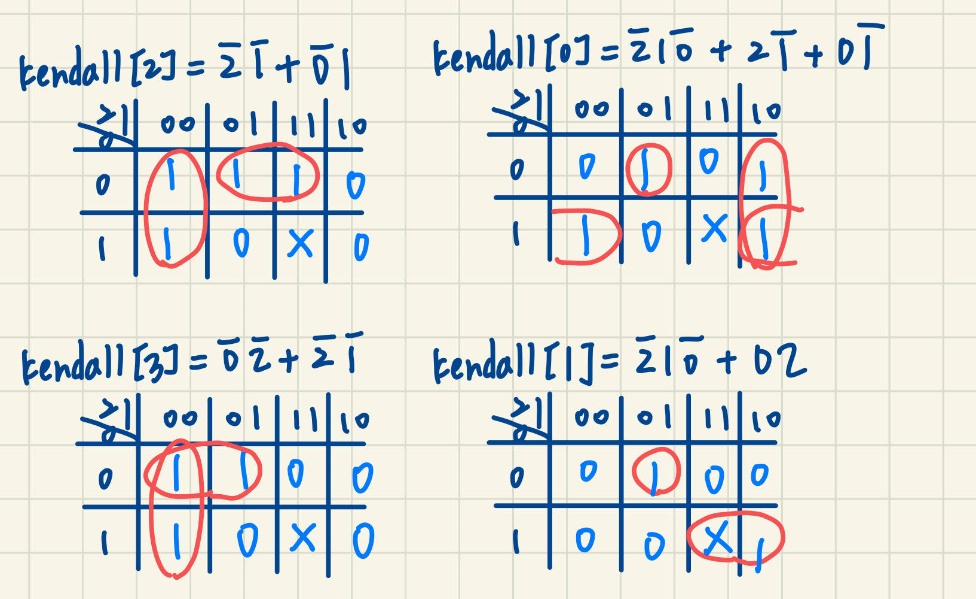 kendall[2] = 2̅ 1̅ + 0̅ 1
21 00 01 11 10
0
0 1 1 1 0
1 1 0 X 0
kendall[0] = 2̅ 1 0̅ + 2 1̅ + 0 1̅
21 00 01 11 10
0
0 0 1 0 1
1 1 0 X 1
kendall[3] = 0̅ 2̅ + 2̅ 1̅
21 00 01 11 10
0
0 1 1 0 0
1 1 0 X 0
kendall[1] = 2̅ 1 0̅ + 0 2
21 00 01 11 10
0
0 0 1 0 0
1 0 0 X 1